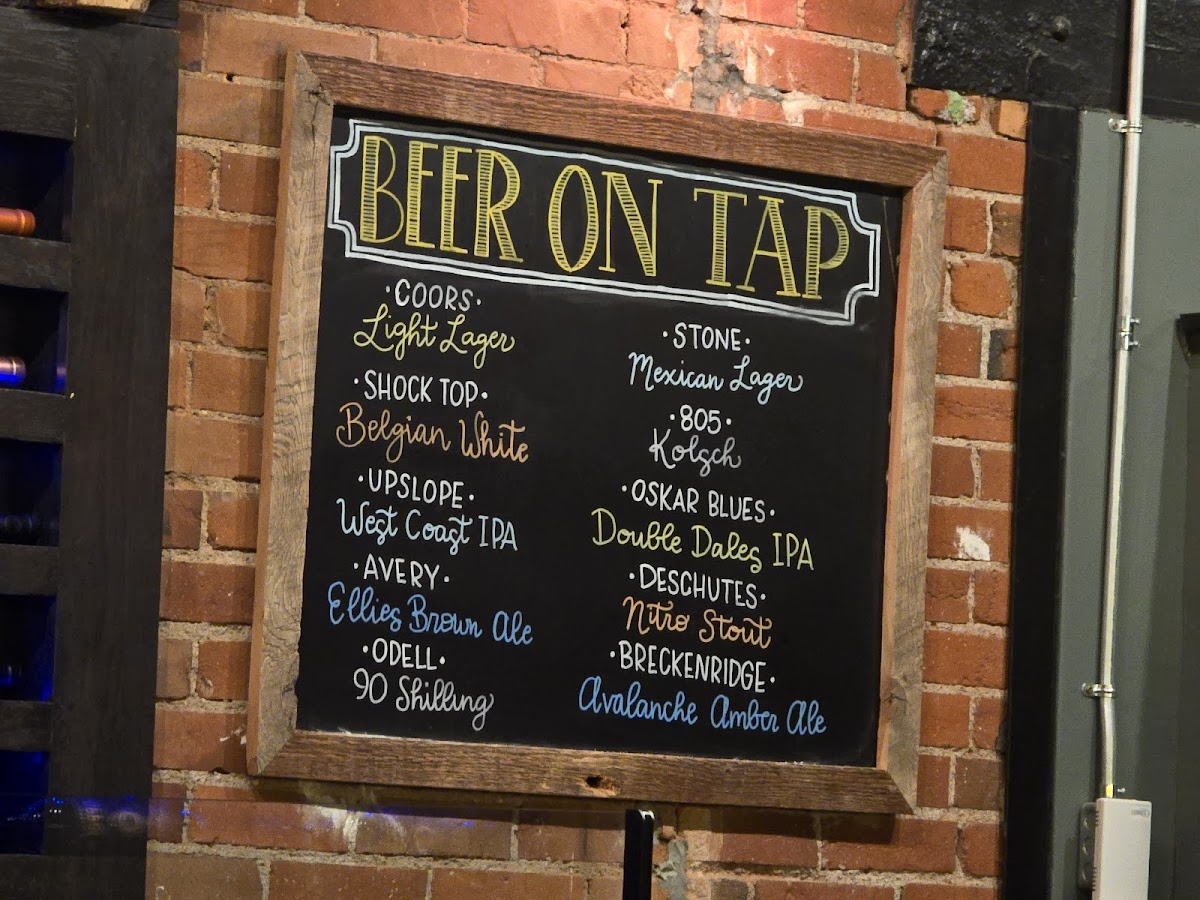 BEER ON TAP
·COORS·
Light Lager
·SHOCK TOP·
Belgian White
·UPSLOPE·
West Coast IPA
·AVERY·
Ellies Brown Ale
·ODELL·
90 Shilling
·STONE·
Mexican Lager
·805·
Kolsch
·OSKAR BLUES·
Double Dales IPA
·DESCHUTES·
Nitro Stout
·BRECKENRIDGE·
Avalanche Amber Ale